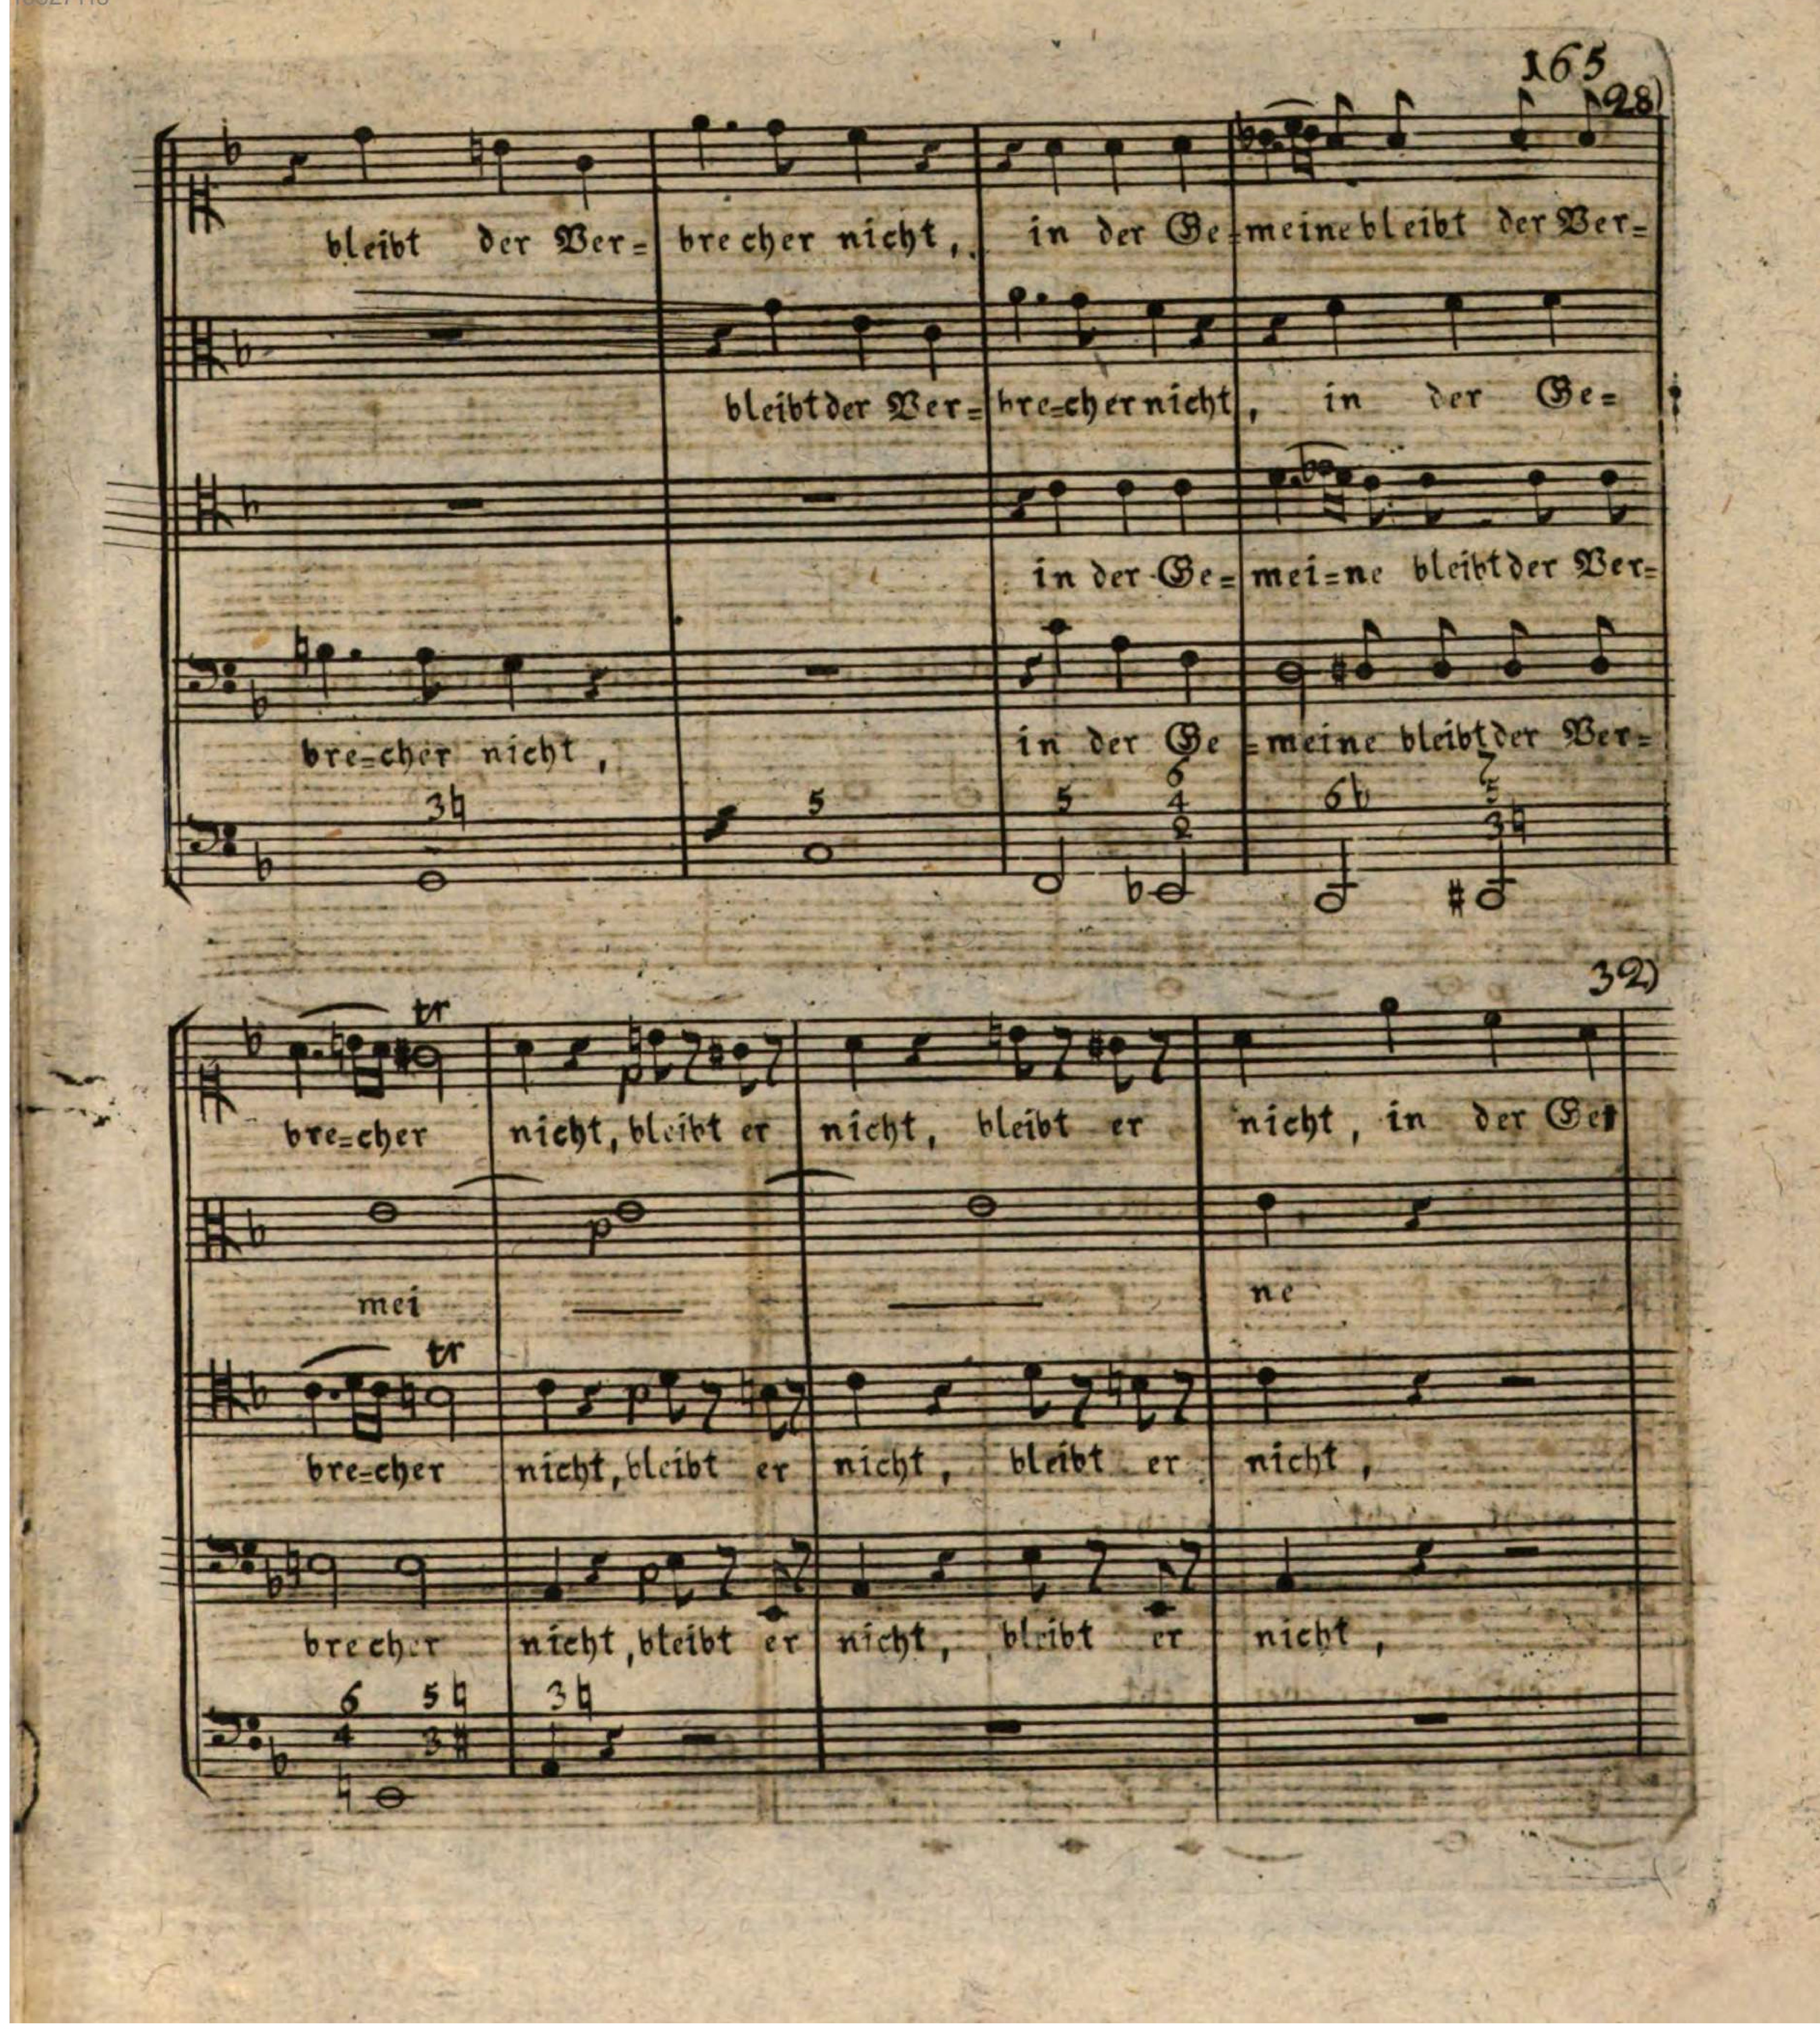 165
28)
bleibt der Ver= brecher nicht, in der Ge=meine bleibt der Ver=
bleibt der Ver= bre=cher nicht, in der Ge=
in der Ge= mei=ne bleibt der Ver=
bre=cher nicht, in der Ge =meine bleibt der Ver=
3♮ 5 5 6 4 2 6♭ 7 5 3♮
32)
tr
p
bre=cher nicht, bleibt er nicht, bleibt er nicht, in der Ge=
p
mei ne
tr
p
bre=cher nicht, bleibt er nicht, bleibt er nicht,
p
brecher nicht, bleibt er nicht, bleibt er nicht,
6 4 5♮ 3# 3♮